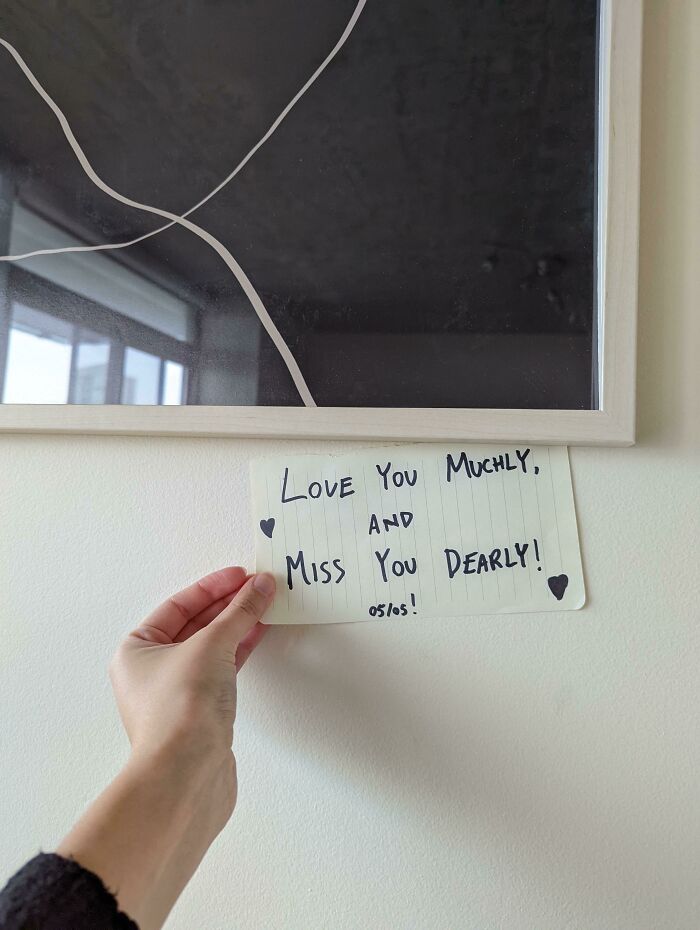 LOVE YOU MUCHLY,
AND
MISS YOU DEARLY!
05/05!